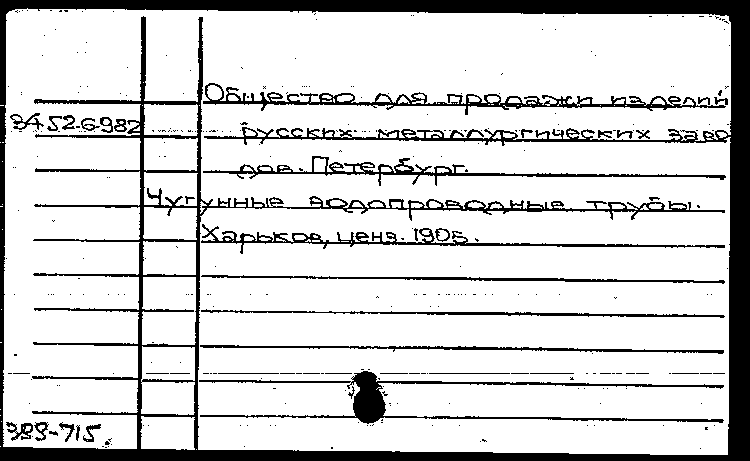 Общество для продажи изделий
34 526982 русских металлургических заво
дов. Петербург.
Чугунные водопроводные трубы.
Харьков, ценз. 1905.
389-715.